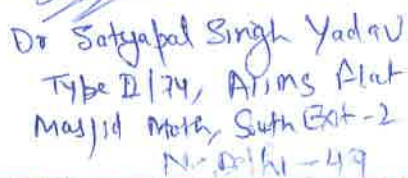 Dr Satyapal Singh Yadav
Type II/74, AIIMS Flat
Masjid Moth, South Ext-2
N-Delhi-49